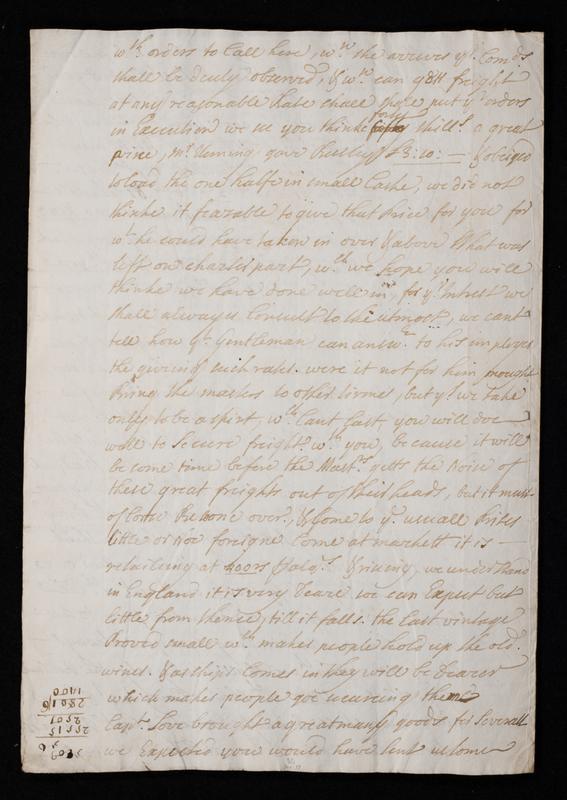 wth orders to Call here, wn she arrives yr Comds
shall be duly observed, & wn can gett freight
at any reasonable Rate shall put yr orders
in Execution we se you thinke forty shills a great
price, Mr gave £3:10:— & obeiged
to load the one halfe in small Caske, we did not
thinke it feazable to give that Price for you for
wt he could have taken in over & above What was
left on charter part, wch we hope you will
thinke we have done well in, for yr Intrest we
shall always Consult to the utmost, we cant
tell how yt Gentleman can answr to his imployes
the giveing such rates. were it not for him mought
Bring the masters to other tirmes, but yt we take
only to be a spirt, wch Cant last, you will doe
well to Secure freight wth you, because it will
become time before the Mastrs getts the Noise of
these great freights out of their heads, but it must
of Corse be over, & Come to ye usuall Prises
little or noe foreigne Come at markett it is —
retaileing at 400rs & riseing, we understand
in England it is very Deare we can Expect but
little from thence, till it falls. the Last vintage
Proved small wch makes people hold up the old
wines. & as ships Comes in they will be Dearer
which makes people goe
Capt. Love brought a great many goods for Severall
we Expected you would have sent us some